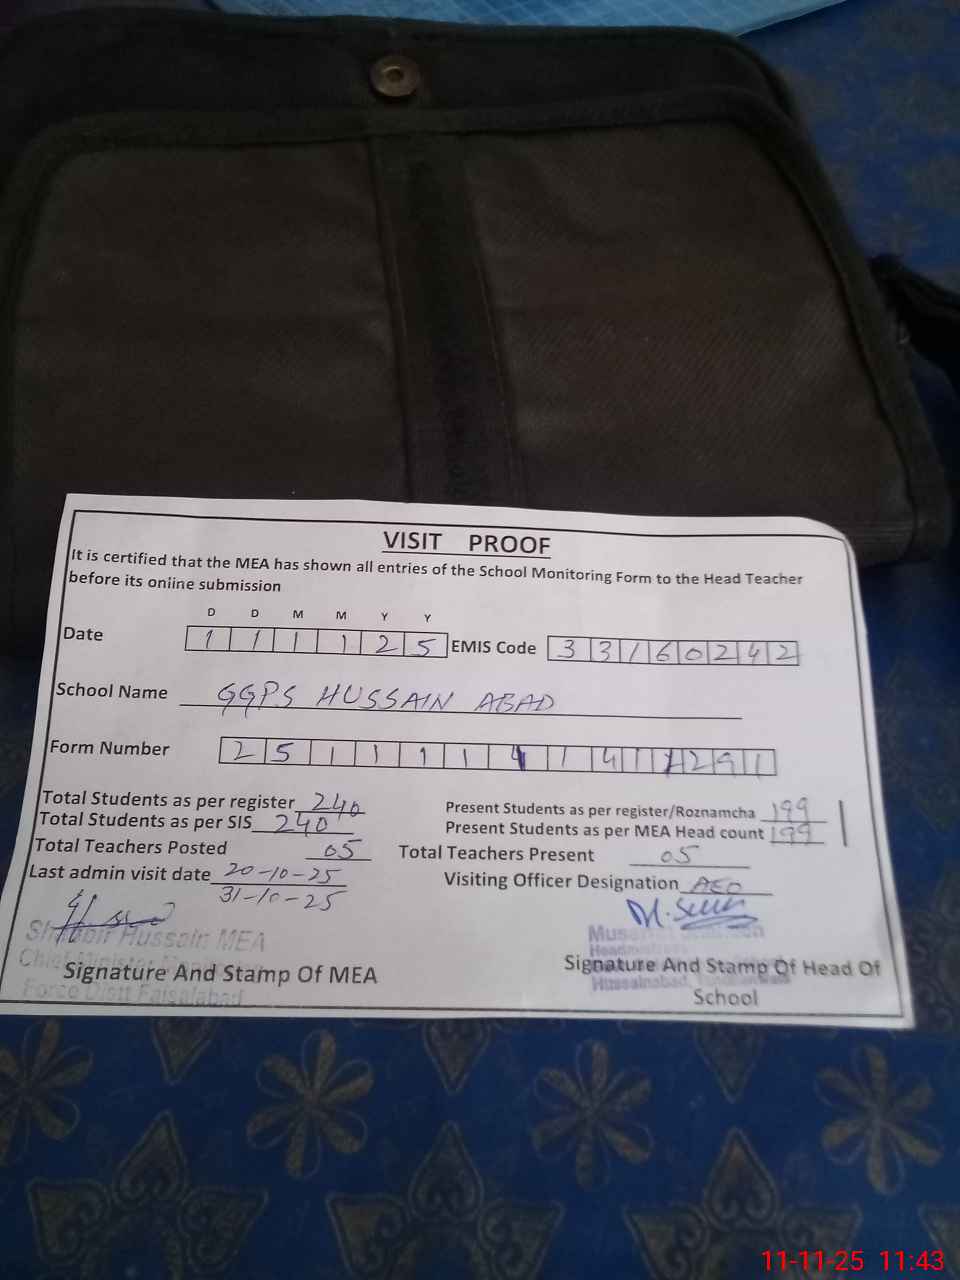 VISIT PROOF
It is certified that the MEA has shown all entries of the School Monitoring Form to the Head Teacher
before its online submission
D D M M Y Y
Date 1 1 1 1 2 5 EMIS Code 3 3 1 6 0 2 4 2
School Name GGPS HUSSAIN ABAD
Form Number 2 5 1 1 1 1
Total Students as per register 240 Present Students as per register/Roznamcha 199
Total Students as per SIS 240 Present Students as per MEA Head count 199
Total Teachers Posted 05 Total Teachers Present 05
Last admin visit date 20-10-25 Visiting Officer Designation AEO
31-10-25
Shabbir Hussain MEA
Chief Minister Monitoring
Force Distt Faisalabad
Signature And Stamp Of MEA
Hussainabad,
Signature And Stamp Of Head Of
School
11-11-25 11:43